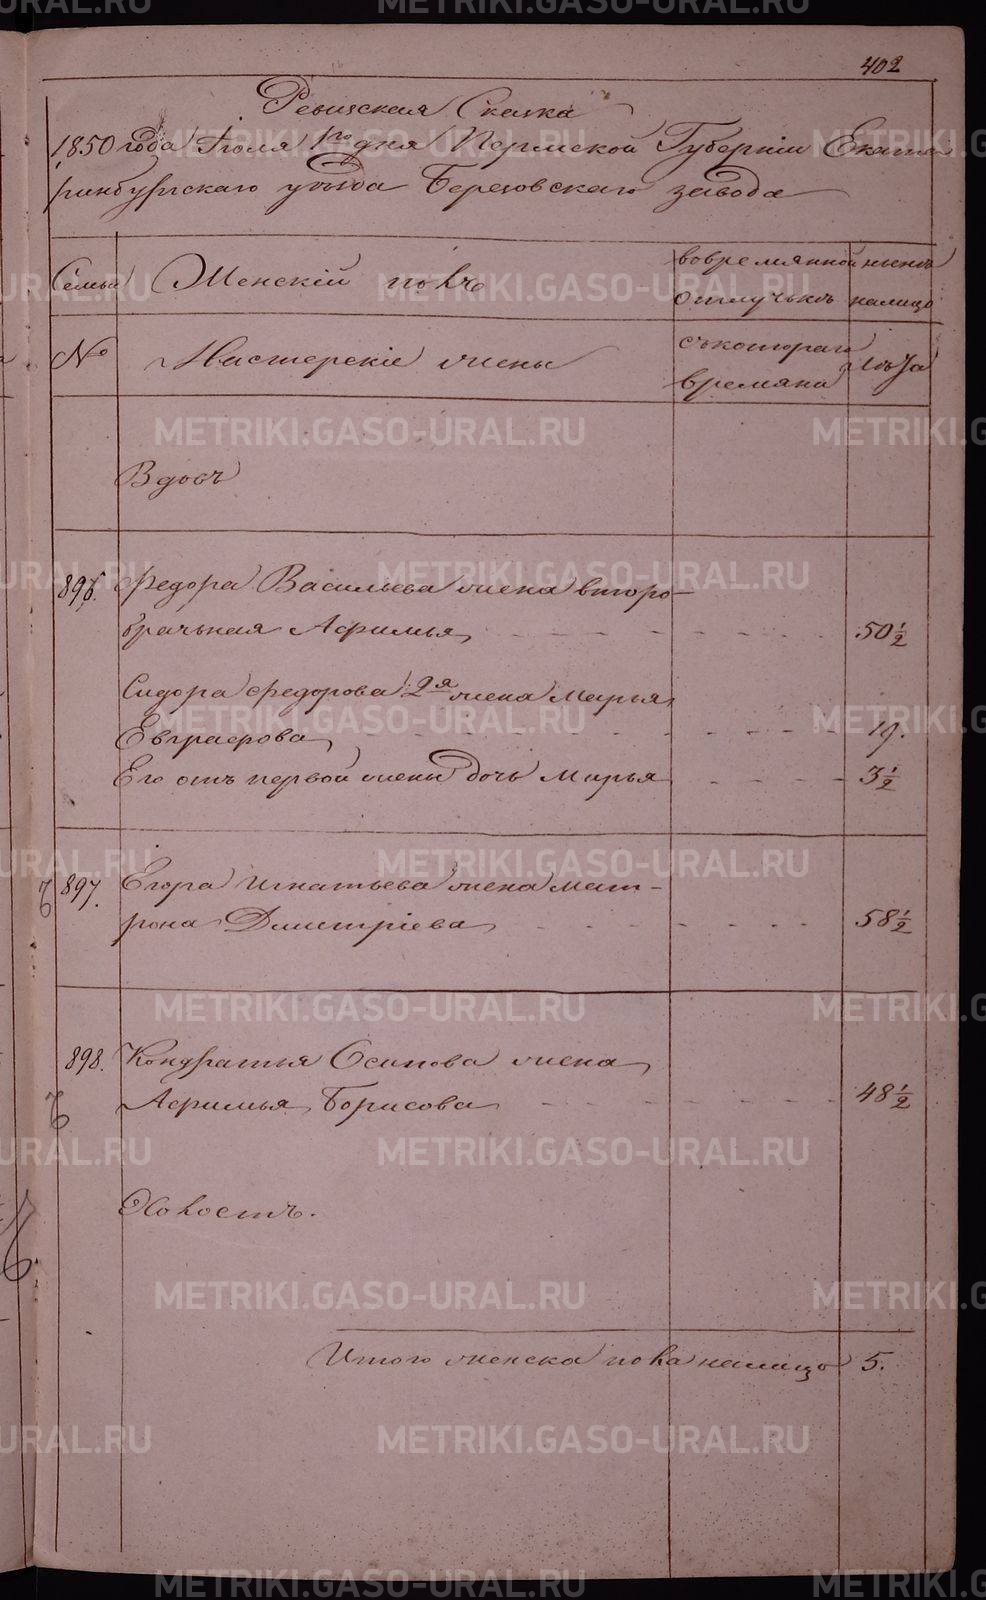 402
Ревизская Сказка
1850 года Июля 1го дня Пермской Губернии Екате
ринбургскаго уезда Березовскаго завода
Семьи Женский полъ вовремянной ныне
отлучькъ налицо
№ Мастерские жены съкотораго Лѣта
времяни
Вдовъ
896. Федора Васильева жена второ-
брачьная Афимья 50 1/2
Сидора Федорова 2я жена Марья
Евграфова 19.
Его отъ первой жены дочь Марья 3 1/2
897. Егора Игнатьева жена Мат-
рона Дмитриева 58 1/2
898. Кондратья Осипова жена
Афимья Борисова 48 1/2
Холостъ.
Итого женска пола налицо 5.
METRIKI.GASO-URAL.RU